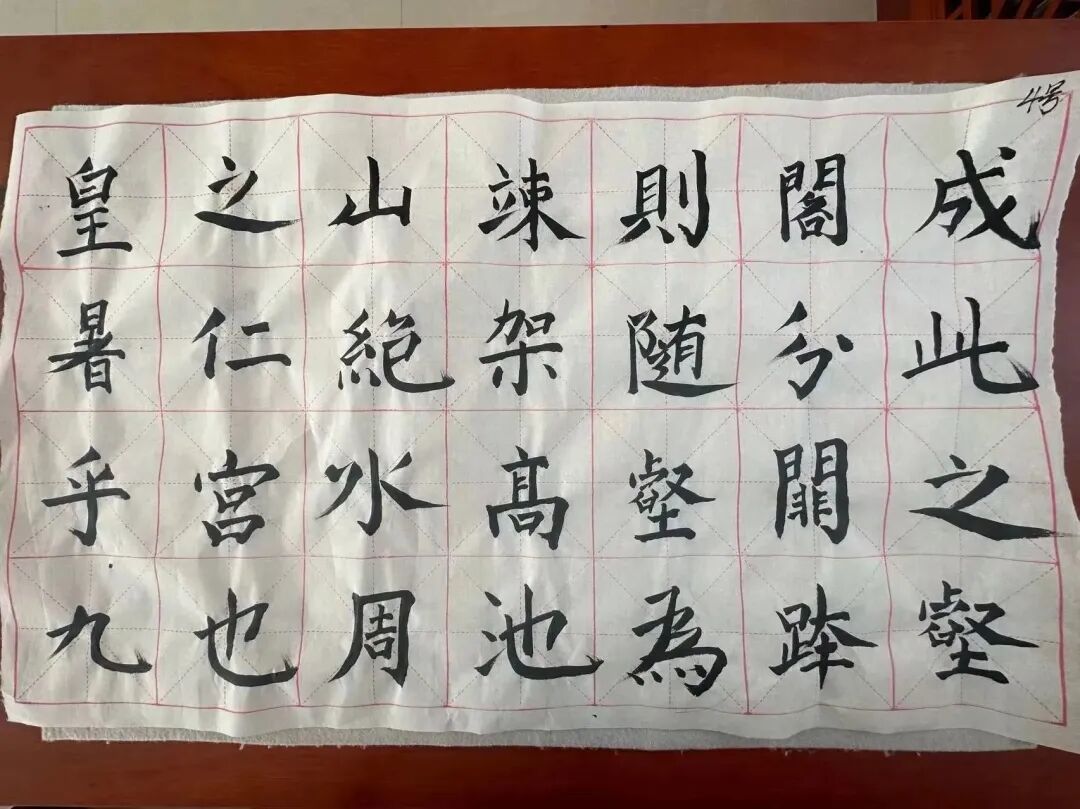 4号
成此之壑
閣分
則随壑為
竦架髙池
山絶水周
之仁宮也
皇暑乎九